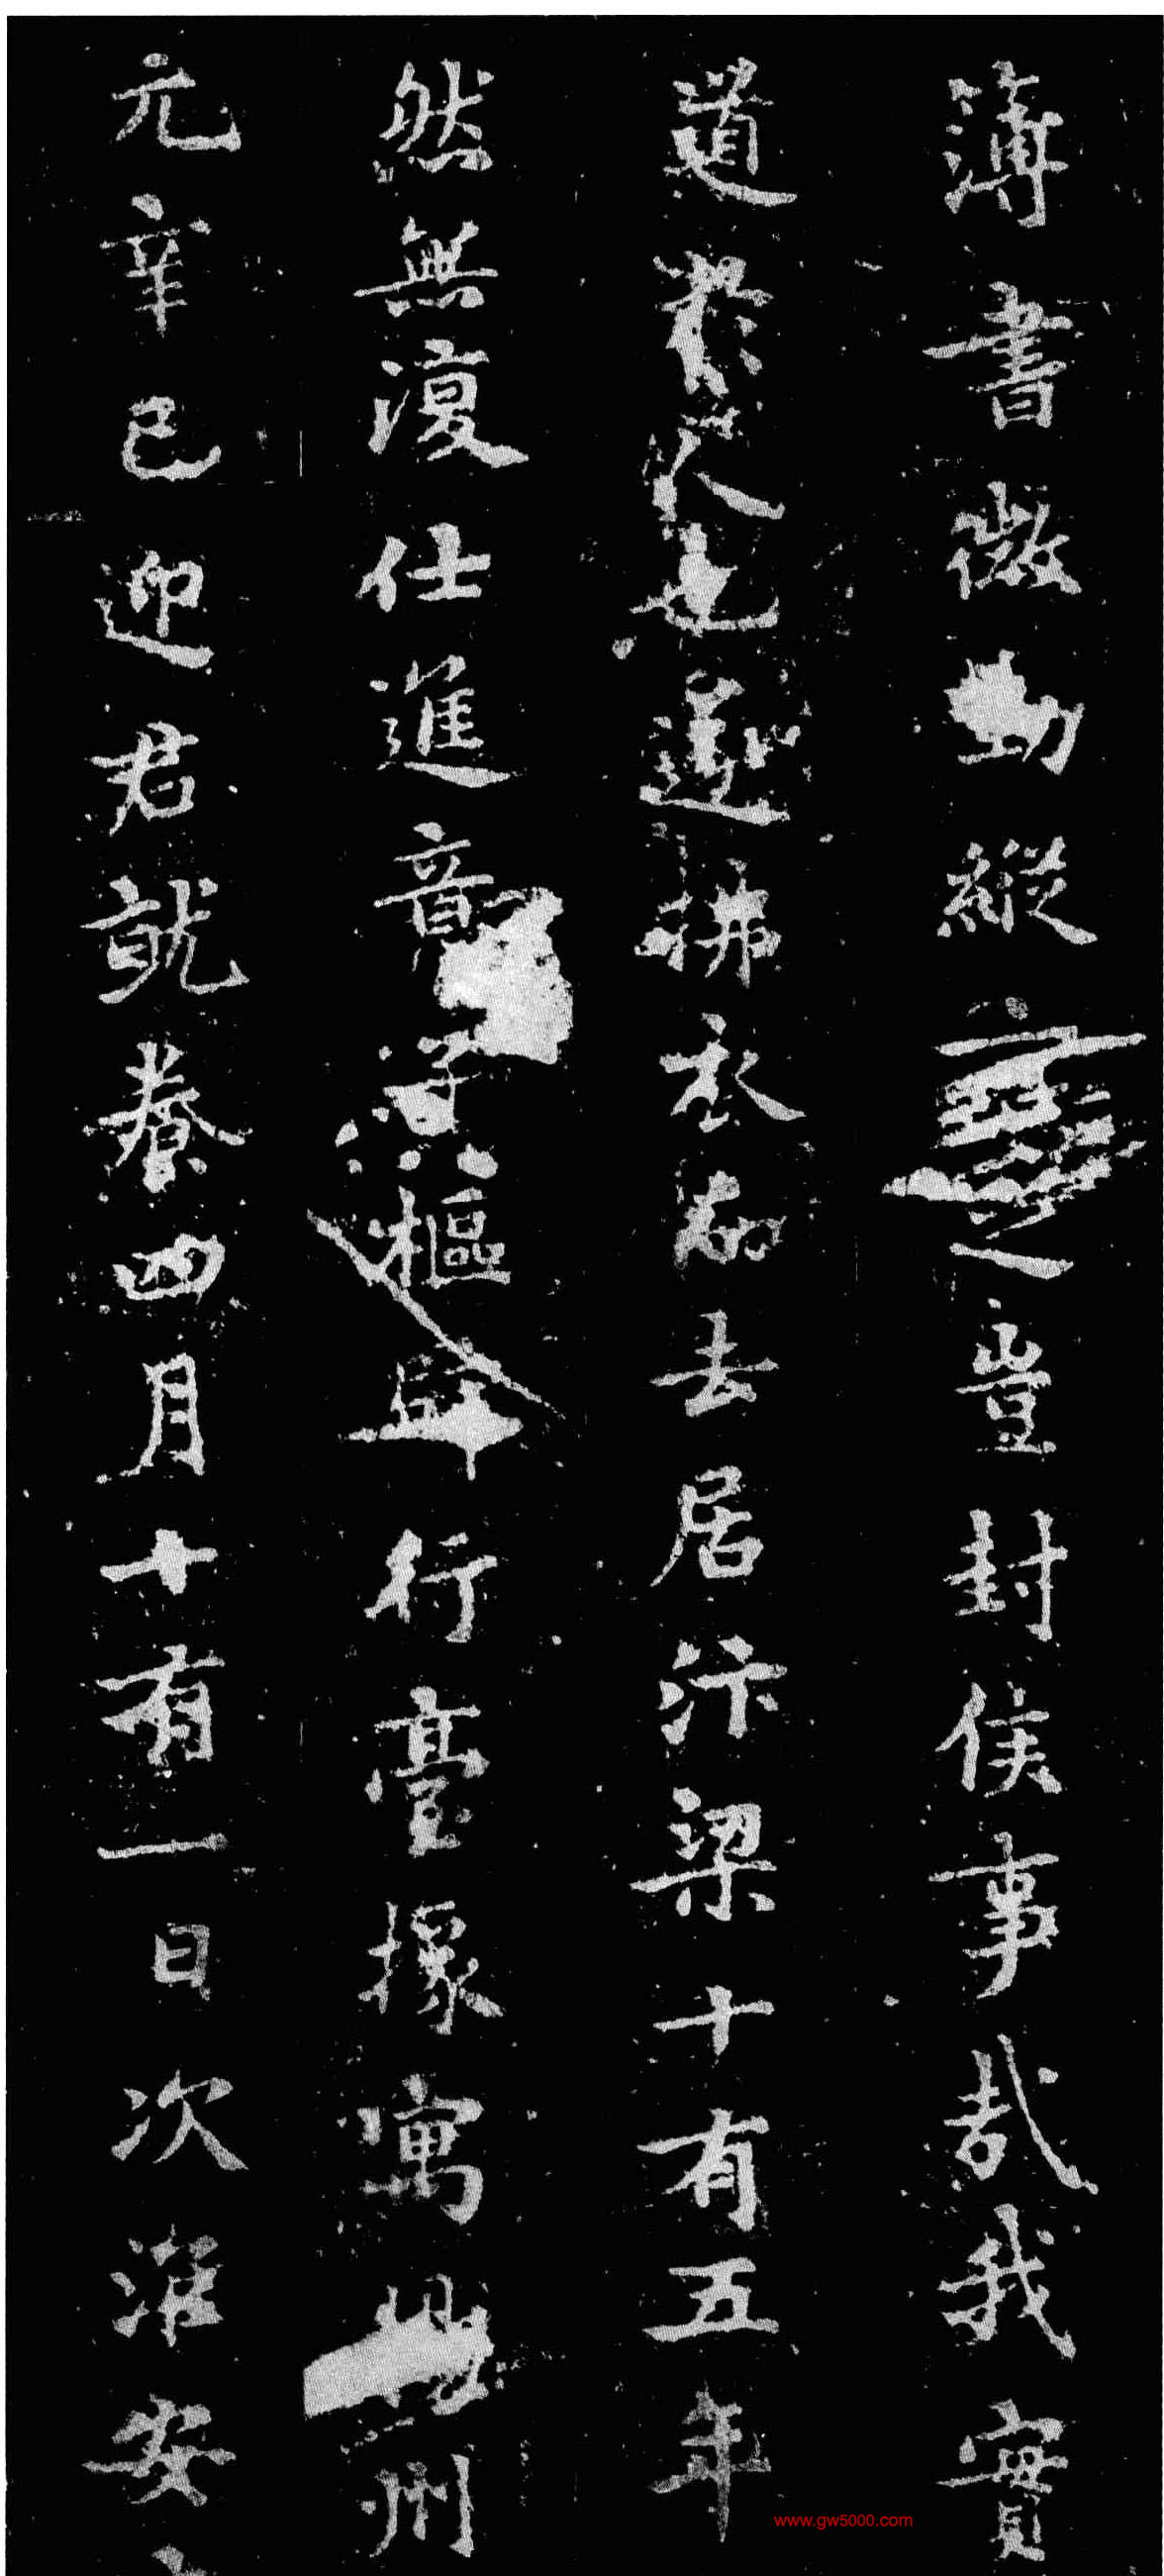 薄書微勳縱之豈封侯事哉我實
道人也遂拂衣而去居汴梁十有五年
然無復仕進音樞行臺掾寓揚州
元辛巳迎君就養四月十有一日次淮安
www.gw5000.com